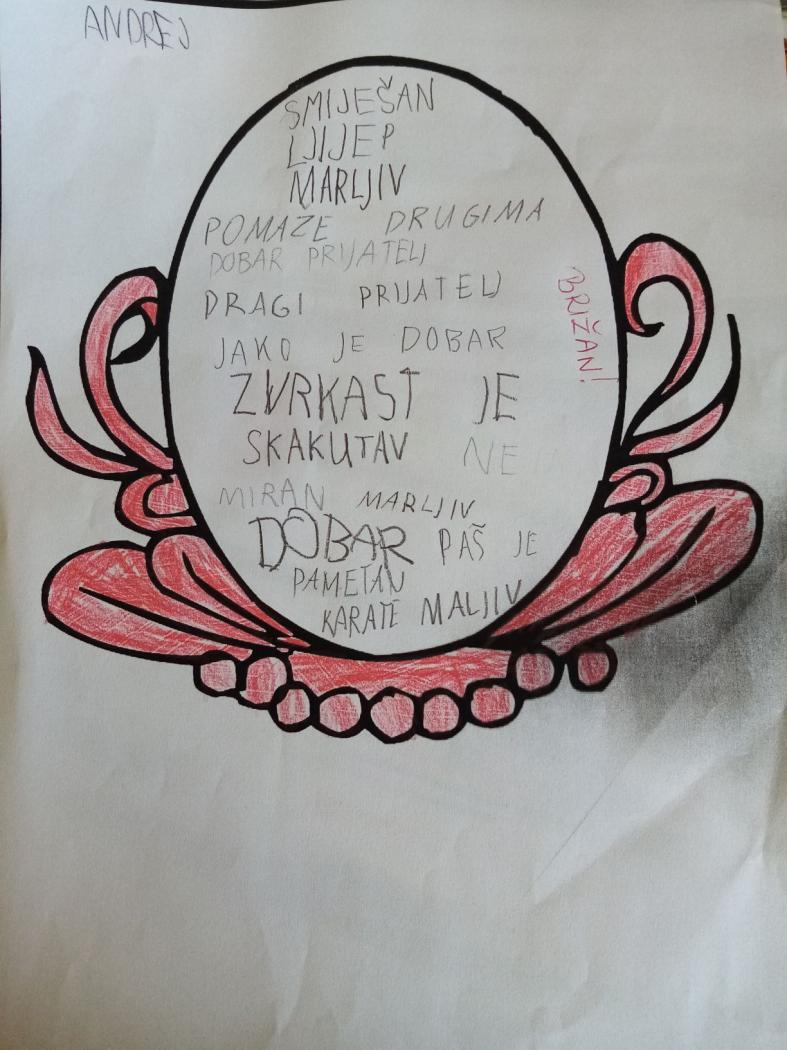 ANDREJ
SMIJEŠAN
LJIJEP
MARLJIV
POMAZE DRUGIMA
DOBAR PRIJATELJ
DRAGI PRIJATELJ
BRIŽAN!
JAKO JE DOBAR
ZVRKAST JE
SKAKUTAV NE
MIRAN MARLJIV
DOBAR PAŠ JE
PAMETAN
KARATE MALJIV